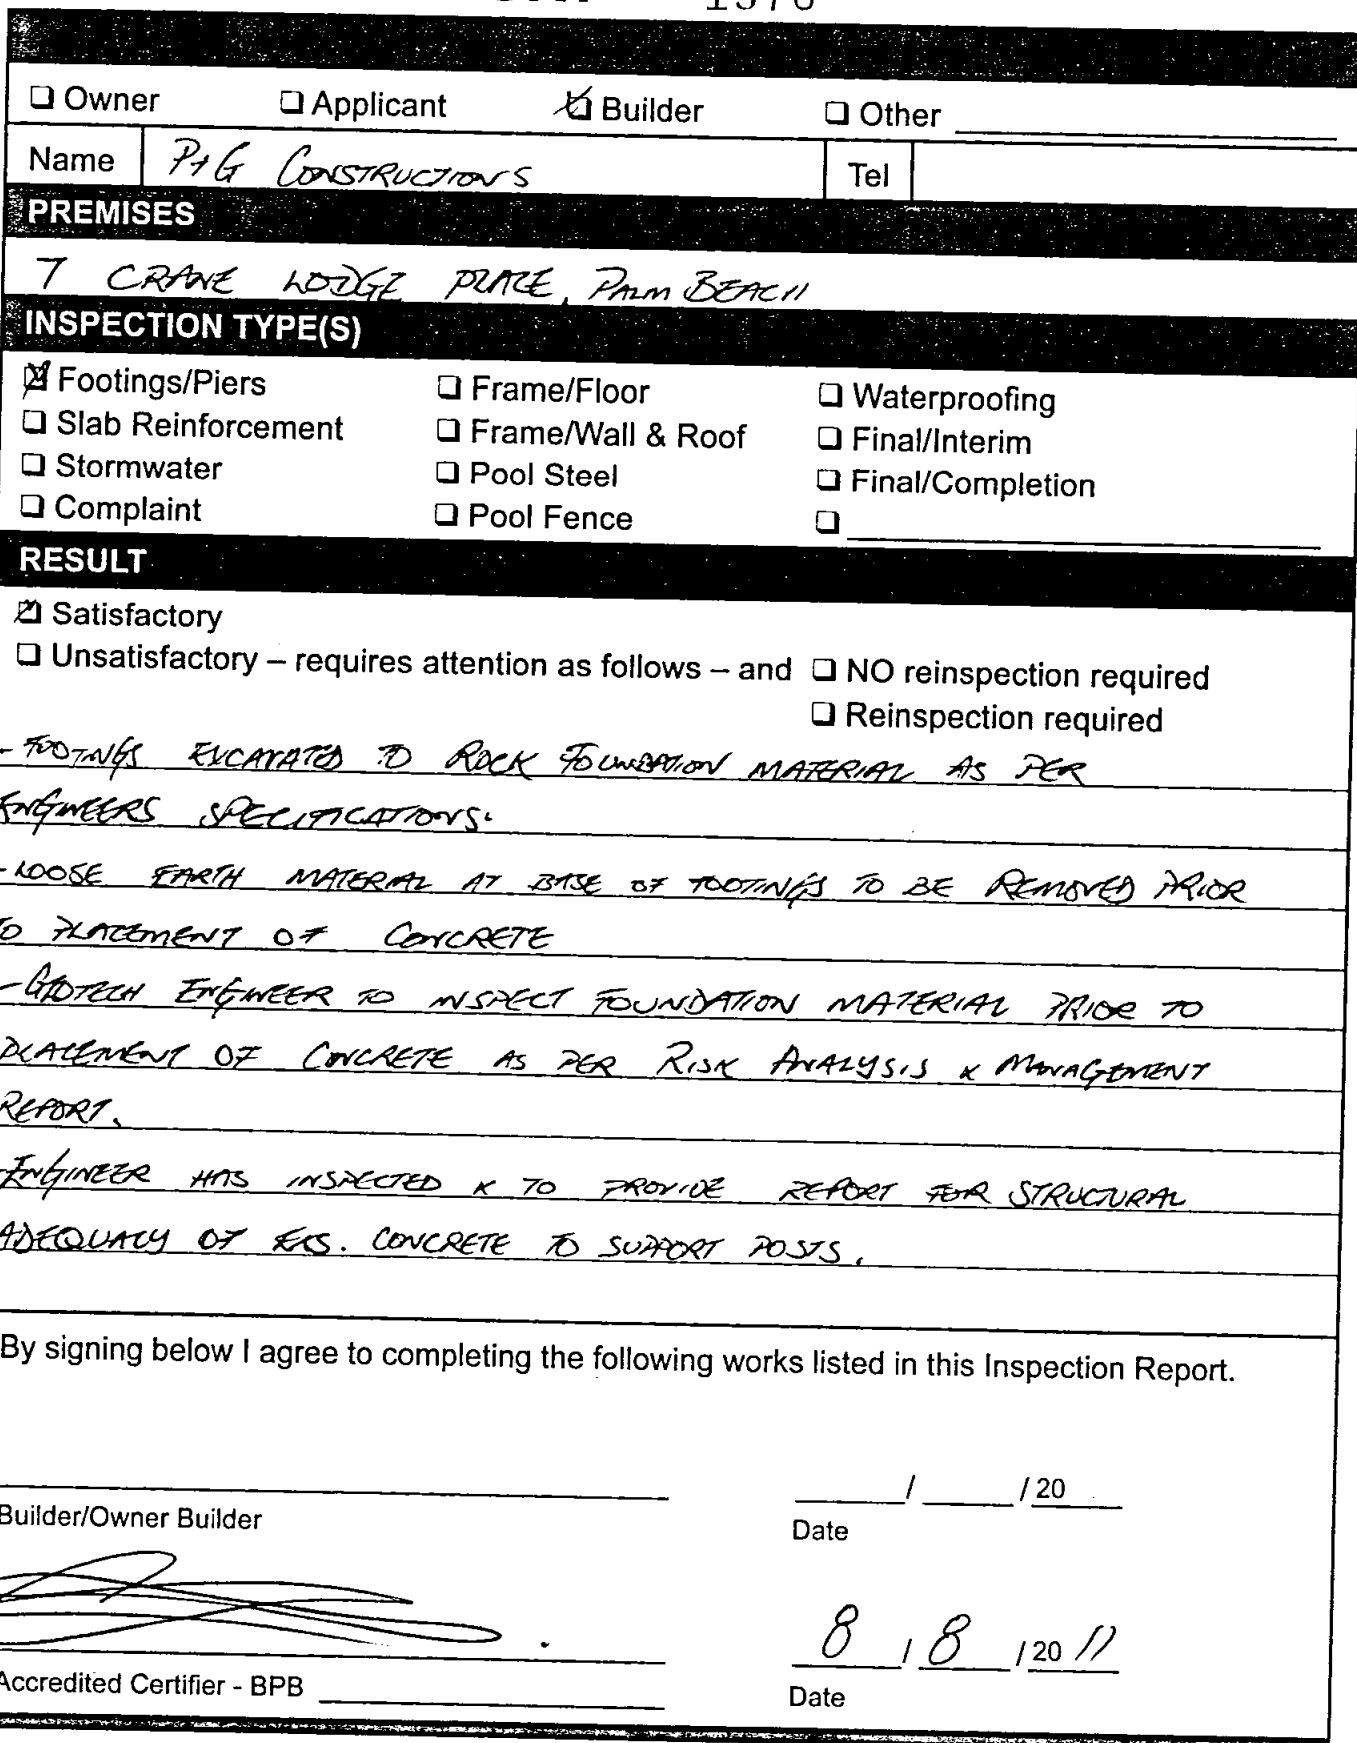 1976
☐ Owner ☐ Applicant ☒ Builder ☐ Other
Name P+G CONSTRUCTIONS Tel
PREMISES
7 CRANE LODGE PLACE, PALM BEACH
INSPECTION TYPE(S)
☒ Footings/Piers ☐ Frame/Floor ☐ Waterproofing
☐ Slab Reinforcement ☐ Frame/Wall & Roof ☐ Final/Interim
☐ Stormwater ☐ Pool Steel ☐ Final/Completion
☐ Complaint ☐ Pool Fence ☐
RESULT
☒ Satisfactory
☐ Unsatisfactory – requires attention as follows – and ☐ NO reinspection required
☐ Reinspection required
- FOOTINGS EXCAVATED TO ROCK FOUNDATION MATERIAL AS PER
ENGINEERS SPECIFICATIONS.
- LOOSE EARTH MATERIAL AT BASE OF FOOTINGS TO BE REMOVED PRIOR
TO PLACEMENT OF CONCRETE
- GEOTECH ENGINEER TO INSPECT FOUNDATION MATERIAL PRIOR TO
PLACEMENT OF CONCRETE AS PER RISK ANALYSIS & MANAGEMENT
REPORT.
- ENGINEER HAS INSPECTED & TO PROVIDE REPORT FOR STRUCTURAL
ADEQUACY OF EXIS. CONCRETE TO SUPPORT POSTS.
By signing below I agree to completing the following works listed in this Inspection Report.
/ / 20
Builder/Owner Builder Date
8 / 8 / 20 11
Accredited Certifier - BPB Date